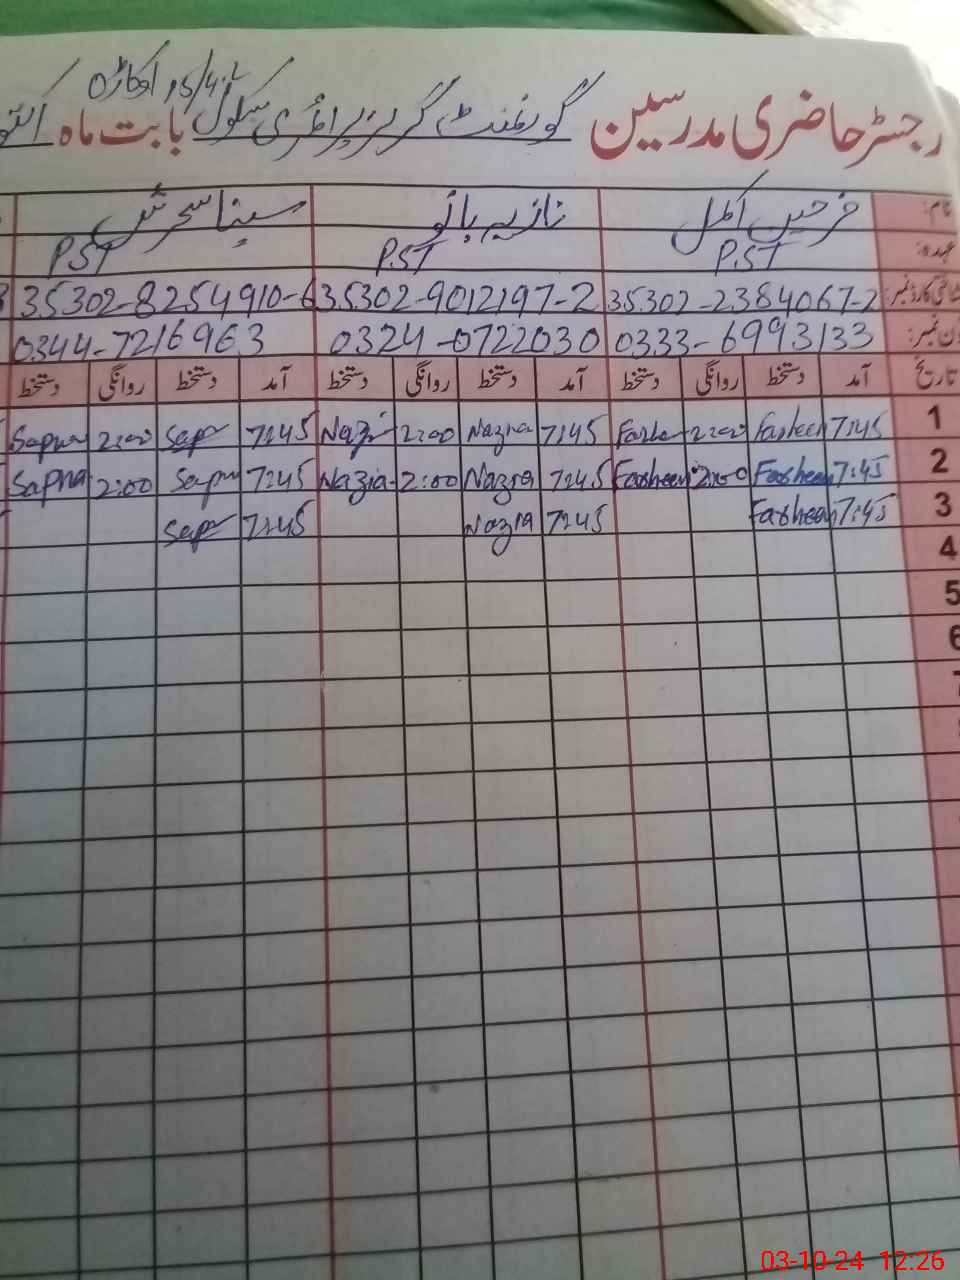 رجسٹر حاضری مدرسین گورنمنٹ گرلز پرائمری سکول 15/4.L اوکاڑہ بابت ماہ
نام: فرحین اکمل نازیہ بانو سپنا سحرش
عہدہ: P.ST P.ST P.ST
35302-2384067-2 35302-9012197-2 35302-8254910-6
0333-6993133 0324-0722030 0344-7216963
تاریخ آمد دستخط روانگی دستخط آمد دستخط روانگی دستخط آمد دستخط روانگی دستخط
1 7:45 Farheen 2:00 7:45 Nazia 2:00 7:45 2:00 Sapna
2 7:45 Farheen 2:00 Farheen 7:45 Nazia 2:00 Nazia 7:45 Sapna 2:00 Sapna
3 7:45 Farheen 7:45 Nazia 7:45
4
5
6
7
03-10-24 12:26